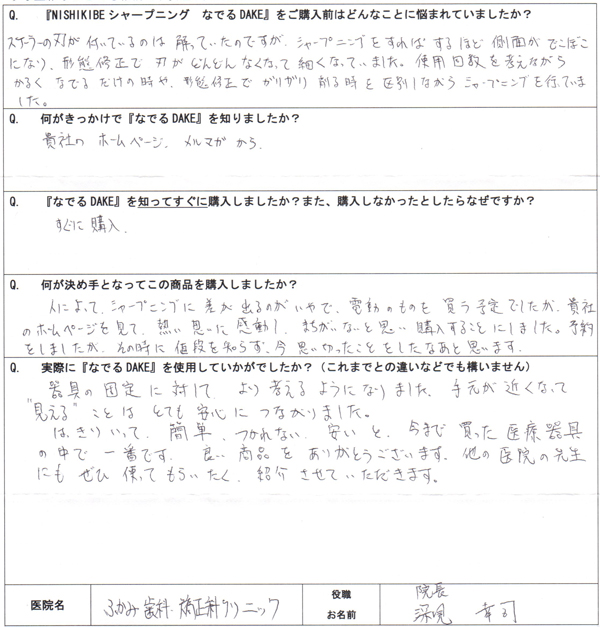 Q. 『NISHIKIBEシャープニング なでるDAKE』をご購入前はどんなことに悩まれていましたか？
スケーラーの刃が付いているのは解っていたのですが、シャープニングをすればするほど側面がでこぼこ
になり、形態修正で刃がどんどんなくなって細くなっていました。使用回数を考えながら
かるくなでるだけの時や、形態修正でがりがり削る時と区別しながらシャープニングを行っていま
した。
Q. 何がきっかけで『なでるDAKE』を知りましたか？
貴社のホームページ、メルマガから。
Q. 『なでるDAKE』を知ってすぐに購入しましたか？また、購入しなかったとしたらなぜですか？
すぐに購入。
Q. 何が決め手となってこの商品を購入しましたか？
人によって、シャープニングに差が出るのがいやで、電動のものを買う予定でしたが、貴社
のホームページを見て、熱い思いに感動し、まちがいないと思い購入することにしました。予約
をしましたが、その時に値段を知らず、今思い切ったことをしたなあと思います。
Q. 実際に『なでるDAKE』を使用していかがでしたか？（これまでとの違いなどでも構いません）
器具の固定に対して、より考えるようになりました。手元が近くなって
"見える"ことはとても安心につながりました。
はっきりいって、簡単、つかれない、安いと、今まで買った医療器具
の中で一番です。良い商品をありがとうございます。他の医院の先生
にもぜひ使ってもらいたく、紹介させていただきます。
医院名 ふかみ歯科・矯正科クリニック 役職 院長
お名前 深見 幸司